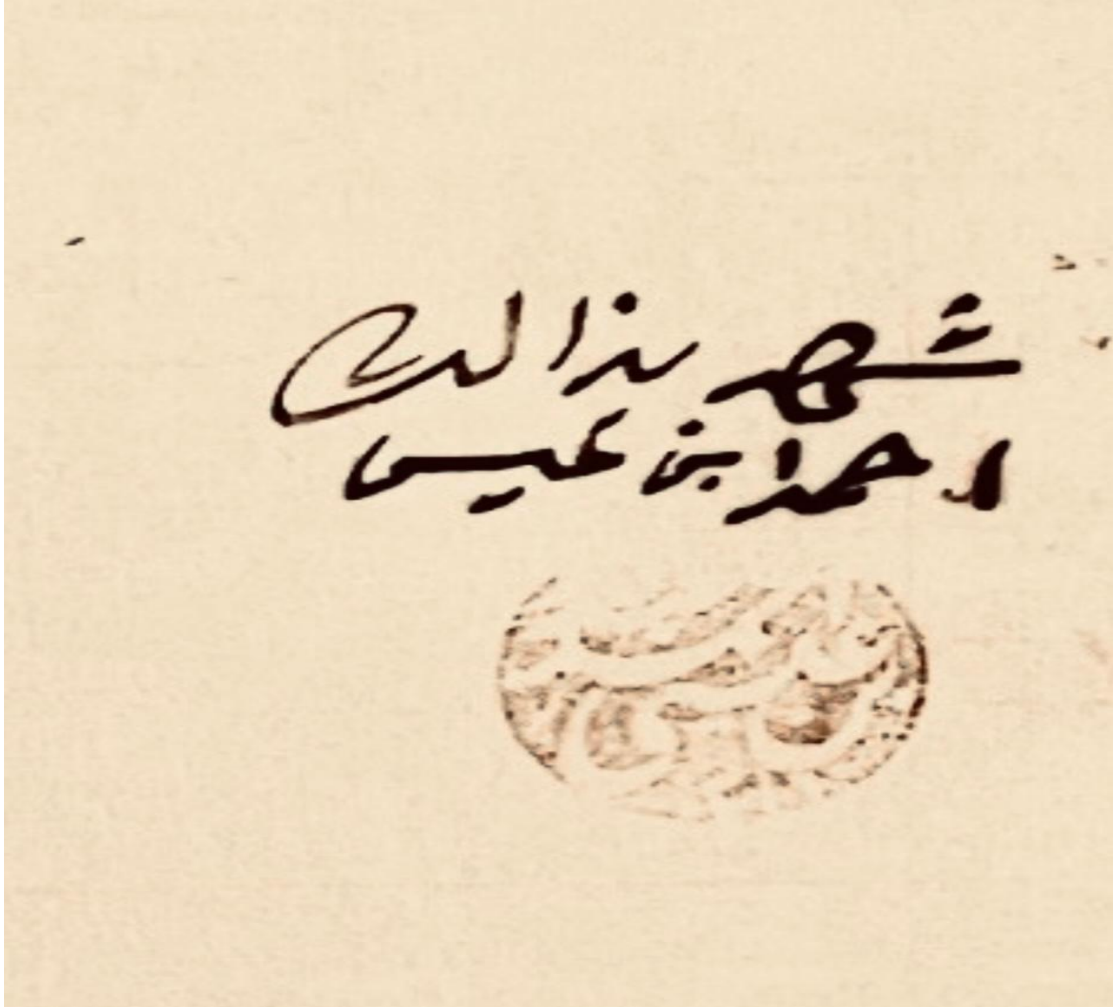 شهد بذالك
احمد ابن عيسى